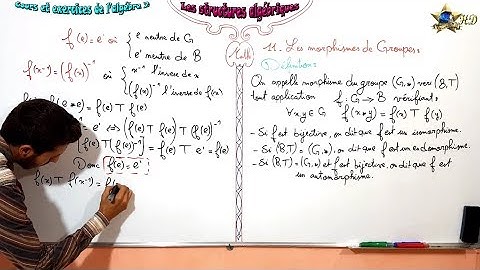 Cours et exercices de l'algèbre 2
Les structures algébriques
H.D
f(e) = e' où { e neutre de G
e' neutre de B
f(x⁻¹) = (f(x))⁻¹ où { x⁻¹ l'inverse de x
(f(x))⁻¹ l'inverse de f(x)
= f(e) T f(e)
= e' ⇔ f(e) T f(e) T (f(e))⁻¹
[f(e) T (f(e))⁻¹] = f(e) T e' = f(e)
Donc f(e) = e'
f(x) T f(x⁻¹) = f(
Math
11. Les morphismes de Groupes:
Définition:
On appelle morphisme du groupe (G,*) vers (B,T)
tout application f: G → B vérifiant:
∀x,y ∈ G f(x*y) = f(x) T f(y)
- Si f est bijective, on dit que f est un isomorphisme.
- Si (B,T) = (G,*), on dit que f est un endomorphisme.
- Si (B,T) = (G,*) et f est bijective, on dit que f est
un automorphisme.